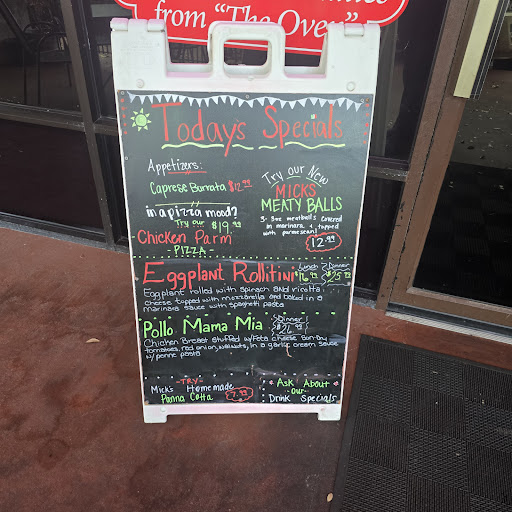 from "The Oven"
Today's Specials
Appetizers:
Caprese Burrata $12.99
in a pizza mood?
Try our $19.99
Chicken Parm
- PIZZA -
Try our New
MICKS
MEATY BALLS
3- 3oz meatballs covered
in marinara & topped
with parmesean!
12.99
Eggplant Rollitini
Lunch $16.99
Dinner $25.99
Eggplant rolled with spinach and ricotta
cheese topped with mozzarella and baked in a
marinara sauce with spaghetti pasta
Pollo Mama Mia
Dinner
$26.99
Chicken Breast stuffed w/Feta cheese Sun-Dry
tomatoes, red onion, walnuts, in a garlic cream sauce
w/penne pasta
-TRY-
Mick's Homemade
Panna Cotta 7.99
* Ask About *
-our-
Drink Specials